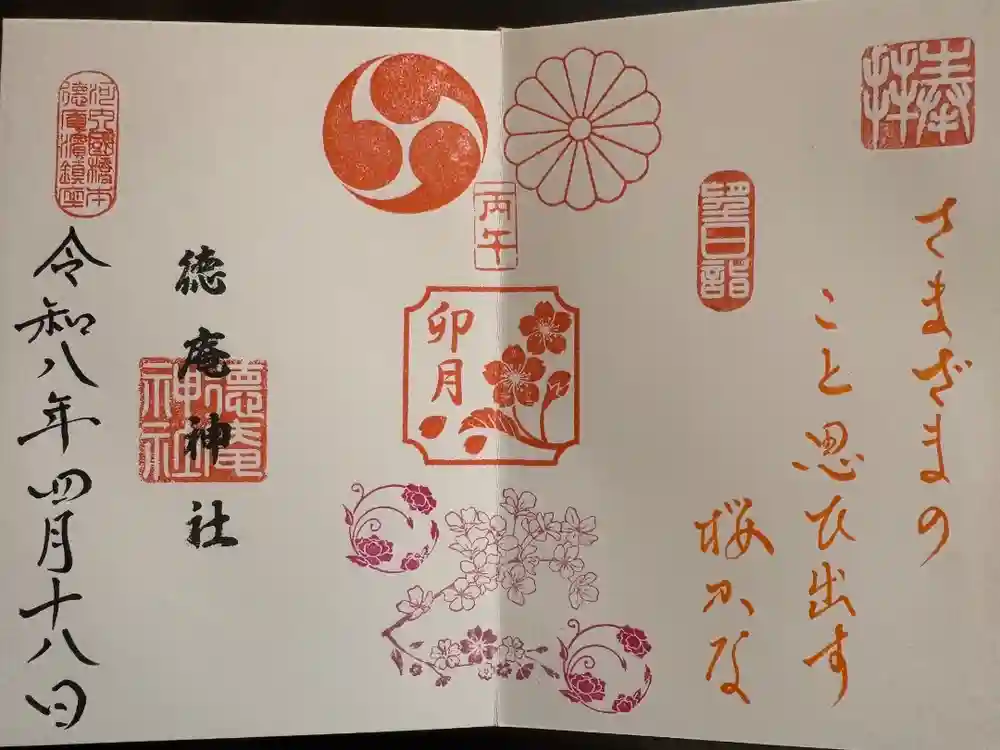 奉拝
さまざまの
こと思ひ出す
桜かな
丙午
卯月
徳庵神社
徳庵神社
令和八年四月十八日